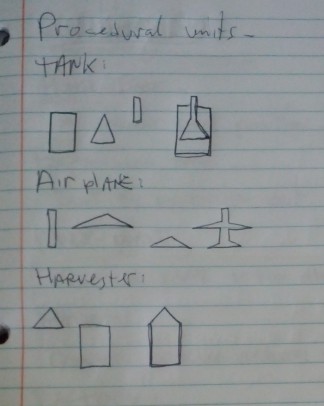 Procedural units-
TANK:
AirplANE:
HArvester: